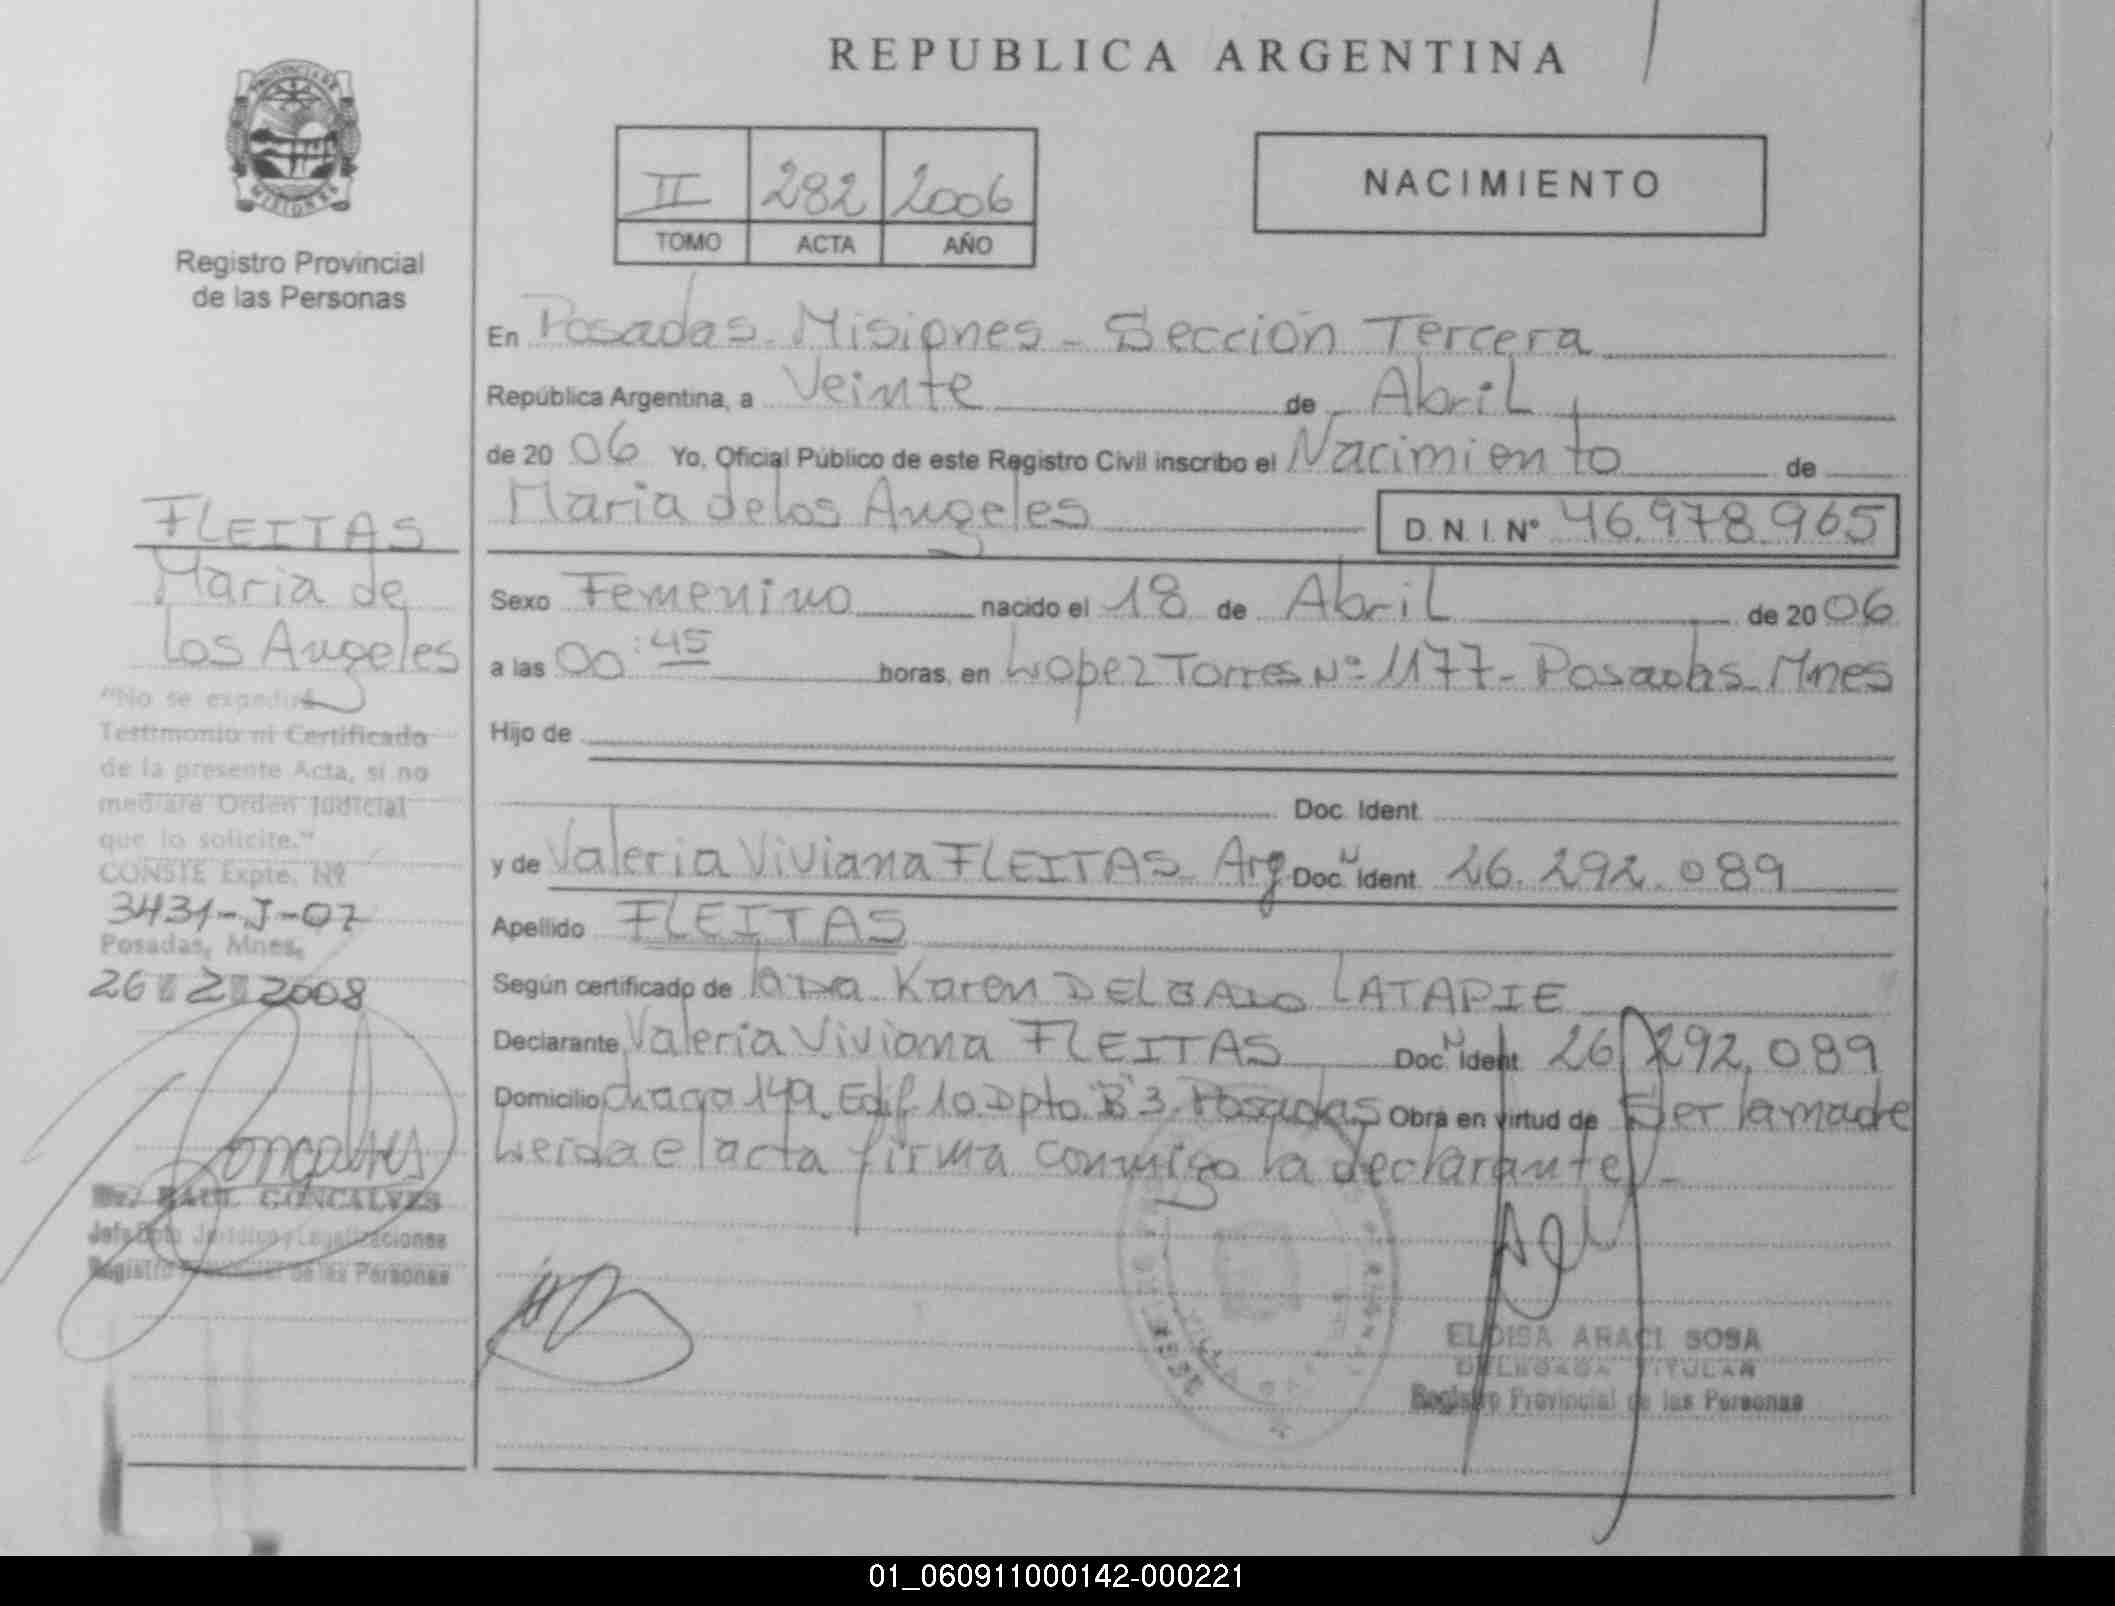 REPUBLICA ARGENTINA
PROVINCIA DE
MISIONES
Registro Provincial
de las Personas
II 282 2006
TOMO ACTA AÑO
NACIMIENTO
En Posadas. Misiones - Sección Tercera
República Argentina, a Veinte de Abril
de 20 06 Yo, Oficial Público de este Registro Civil inscribo el Nacimiento de
Maria de los Angeles D. N. I. Nº 46.978.965
Sexo Femenino nacido el 18 de Abril de 20 06
a las 00:45 horas, en Lopez Torres Nº 1177 - Posadas - Mnes
Hijo de
Doc. Ident.
y de Valeria Viviana FLEITAS Arg. Doc. N Ident. 26.292.089
Apellido FLEITAS
Según certificado de la Dra Karen LATAPIE
Declarante Valeria Viviana FLEITAS Doc. N Ident. 26.292.089
Domicilio 149 Edif 10 Dpto "B" 3. Posadas Obra en virtud de Ser la madre
Leida el acta firma conmigo la declarante -
ELOISA ARACI SOSA
DELEGADA TITULAR
Registro Provincial de las Personas
FLEITAS
Maria de
los Angeles
"No se expedirá
Testimonio ni Certificado
de la presente Acta, si no
mediare Orden Judicial
que lo solicite."
CONSTE Expte. Nº
3431-J-07
Posadas, Mnes,
26 2 2008
Goncalves
Dr. RAUL GONCALVES
Jefe Dpto Jurídico y Legalizaciones
Registro Provincial de las Personas
01_060911000142-000221